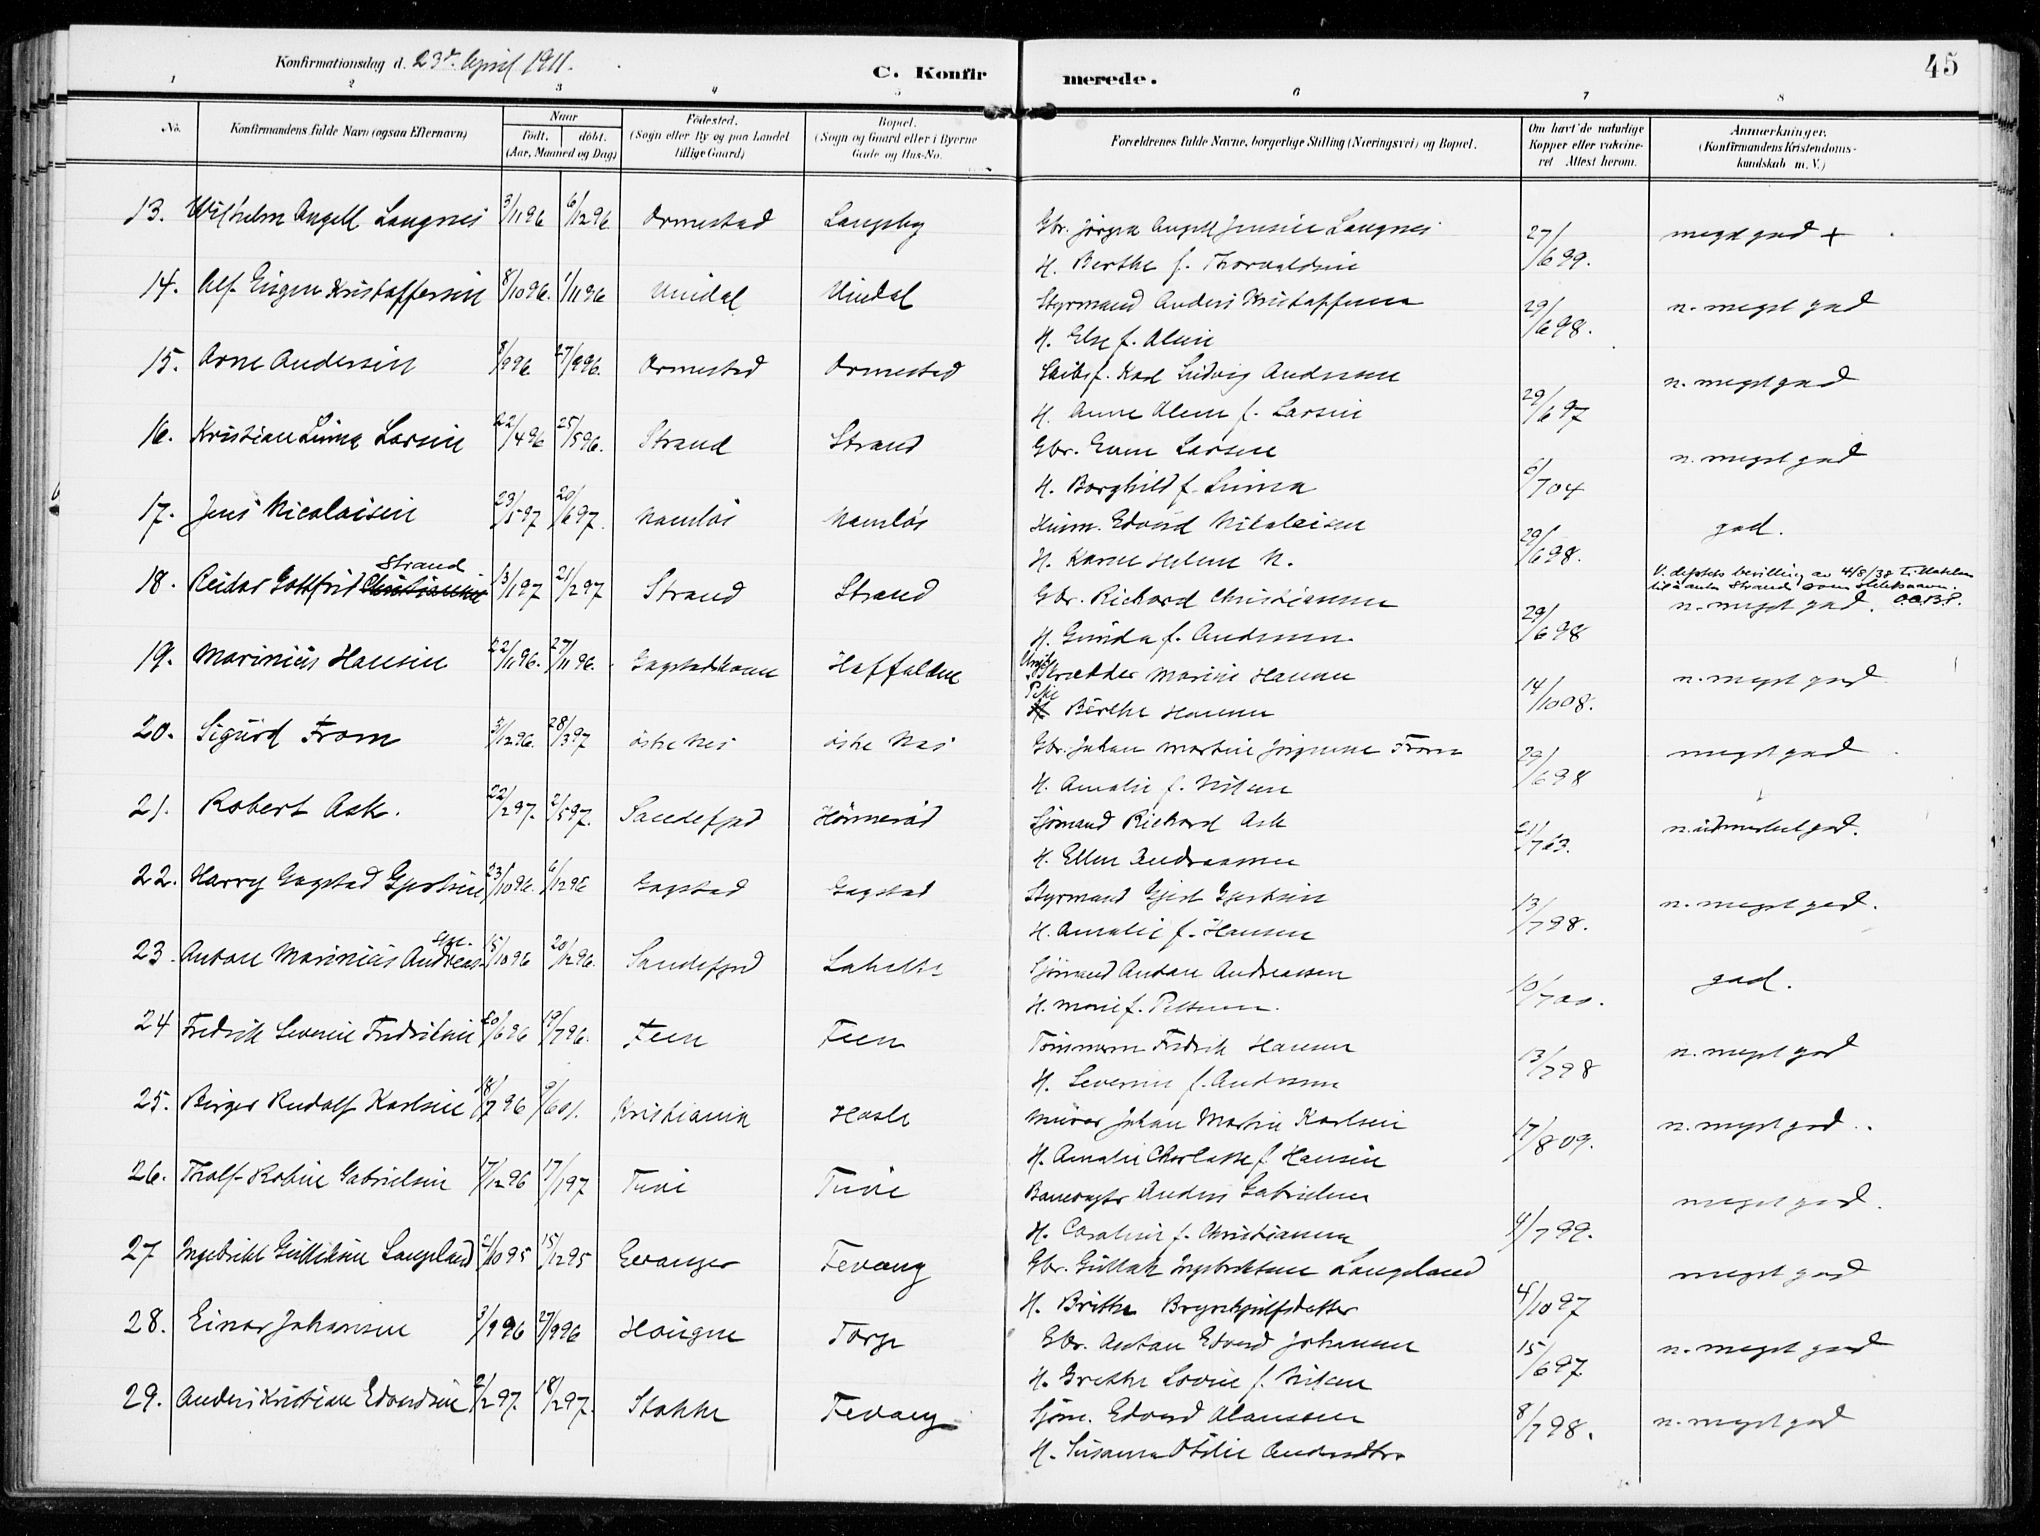 45
Konfirmationsdag d. 23de April 1911.
C. Konfirmerede.
1 2 3 4 5 6 7 8
No. Konfirmandens fulde Navn (ogsaa Efternavn) Naar Födt. döbt. (Aar, Maaned og Dag) Födested. (Sogn eller By og paa Landet tillige Gaard) Bopæl. (Sogn og Gaard eller i Byerne Gade og Hus-No. Forældrenes fulde Navne, borgerlige Stilling (Næringsvei) og Bopæl. Om havt de naturlige Kopper eller vaccineret. Attest herom. Anmærkninger. (Konfirmandens Kristendomskundskab m. V.)
13. Wilhelm Angell Langnes 3/11 96 6/12 96 Ormestad Langeby Gbr. Jörgen Angell Jensen Langnes 27/6 99. megt god +
H. Berthe f. Thorvaldsen
14. Alf Eugen Kristoffersen 8/10 96. 1/11 96 Unidal Unidal Styrmand Anders Kristoffersen 29/6 98. n. meget god
H. Else f. Olsen
15. Arne Andersen 8/9 96. 27/9 96. Ormestad Ormestad Skibsf. Karl Ludvig Andersen 29/6 97 n. meget god
H. Anne Olene f. Larsen
16. Kristian Lunia Larsen 22/4 96 25/5 96. Strand Strand Gbr. Even Larsen 6/7 04 n. meget god
H. Borghild f. Lunia
17. Jens Nicolaisen 23/5 97 20/6 97. Namlös Namlös Husm. Edvard Nikolaisen 29/6 98. god.
H. Karen Helene N.
18. Reidar Gottfrid Christiansen Strand 13/1 97 21/2 97 Strand Strand Gbr. Richard Christiansen 29/6 98 n. meget god.
V. dep.tets bevilling av 4/8/38 til
til å anta Strand som slektsnavn. O.O.B.P.
H. Gunda f. Andersen.
19. Marinius Hansen 22/11 96. 27/11 96. Gogstad Haffalden Skrædder Marius Hansen 14/10 08. n. meget god
Pike Berthe Hansen
20. Sigurd From 5/12 96. 28/3 97 östre Nes östre Nes Gbr. Johan Martin Jörgensen From 29/6 98 meget god
H. Amalie f. Nilsen
21. Robert Ask. 22/2 97. 2/5 97. Sandefjord Hönneröd Sjömand Richard Ask 21/7 03. n. udmerket god.
H. Ellen Andreassen
22. Harry Gogstad Gjertsen 23/10 96. 6/12 96 Gogstad Gogstad Styrmand Gjert Gjertsen 13/7 98. n. meget god.
H. Amalie f. Hansen
23. Anton Marinius Andreassen 15/10 96 20/12 96. Sandefjord Sjömand Anton Andreassen 10/7 00. god.
H. Marie f. Pettersen.
24 Fredrik Severin Fredriksen 20/6 96 19/7 96. Feen Feen Tömmerm Fredrik Hansen 13/7 98 n. meget god
H. Severine f. Andersen
25. Birger Rudolf Karlsen 18/7 96 9/6 01. Kristiania Hasle Murer Johan Martin Karlsen 17/8 09. n. meget god.
H. Amalie Charlotte f. Hansen
26. Tholf Robin Gabrielsen 17/12 96 17/1 97 Tuve Tuve Banevogter Anders Gabrielsen 4/7 99. meget god.
H. Caroline f. Christiansen
27 Ingebrikt Gulliksen Langeland 2/10 95 15/12 95 Evanger Fevang Gbr. Gullak Ingebriktsen Langeland 4/10 97 meget god
H. Brithe Brynhjulfsdatter
28. Einar Johansen 3/9 96 27/9 96 Haugen Torp Gbr. Anton Edvard Johansen 15/6 97 n. meget god
H. Grethe Lovise f. Nilsen
29. Anders Kristian Edvardsen 2/1 97. 18/2 97. Stokke Fevang Sjöm. Edvard Olaussen 8/7 98. n. meget god
H. Susanna Otilie Andersdtr.